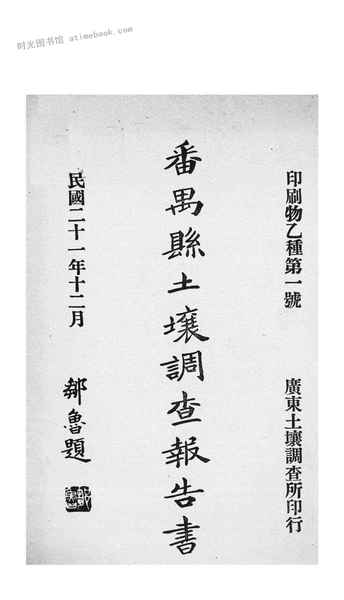 时光图书馆 atimebook.com
印刷物乙種第一號
廣東土壤調查所印行
番禺縣土壤調查報告書
民國二十一年十二月
鄒魯題